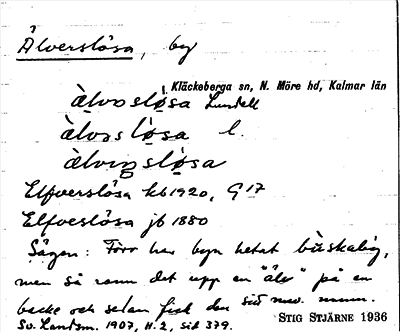 Älverslösa, by
Kläckeberga sn, N. Möre hd, Kalmar län
àlvosḷøsa Lundell
àlvəsløsa l.
àlvinsløsa
Elfverslösa kb 1920, G 17
Elfveslösa jb 1880
Sägen: Förr har byn hetat büskalig,
men så rann det upp en "älv" på en
backe och sedan fick den sitt nuv. namn.
Sv. Landsm. 1907, H. 2, sid 379.
STIG STJÄRNE 1936